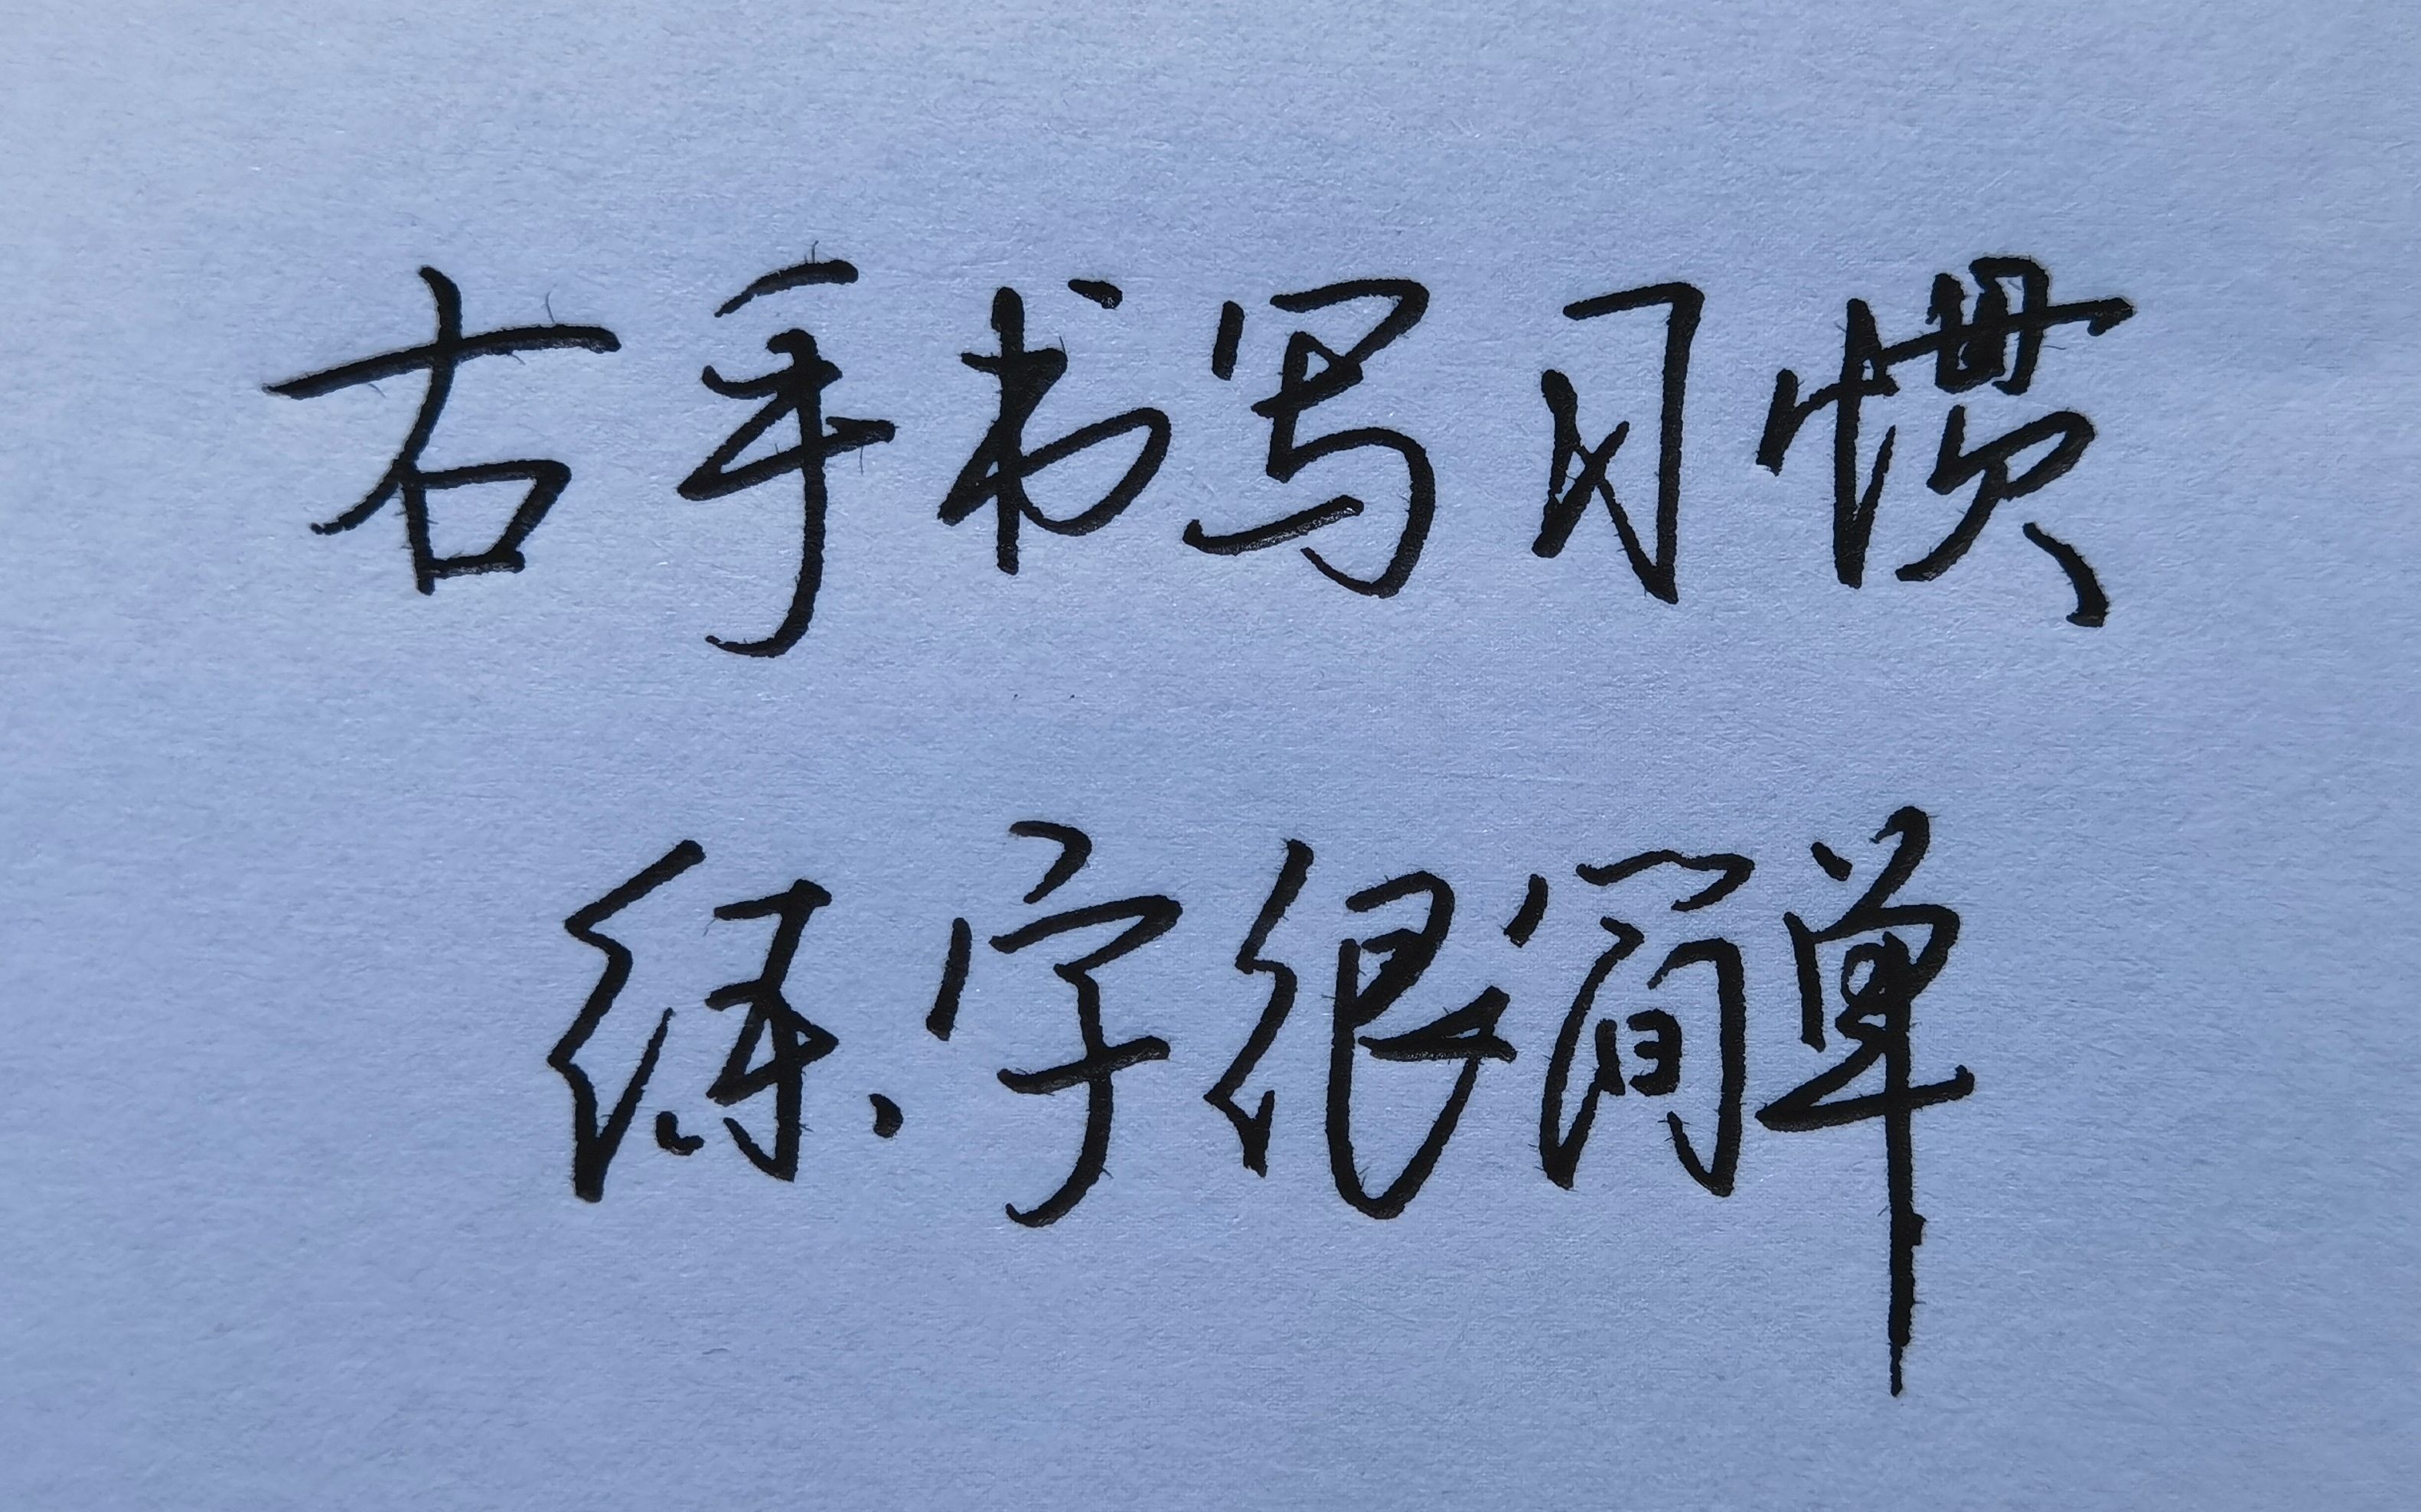 右手书写习惯
练字很简单